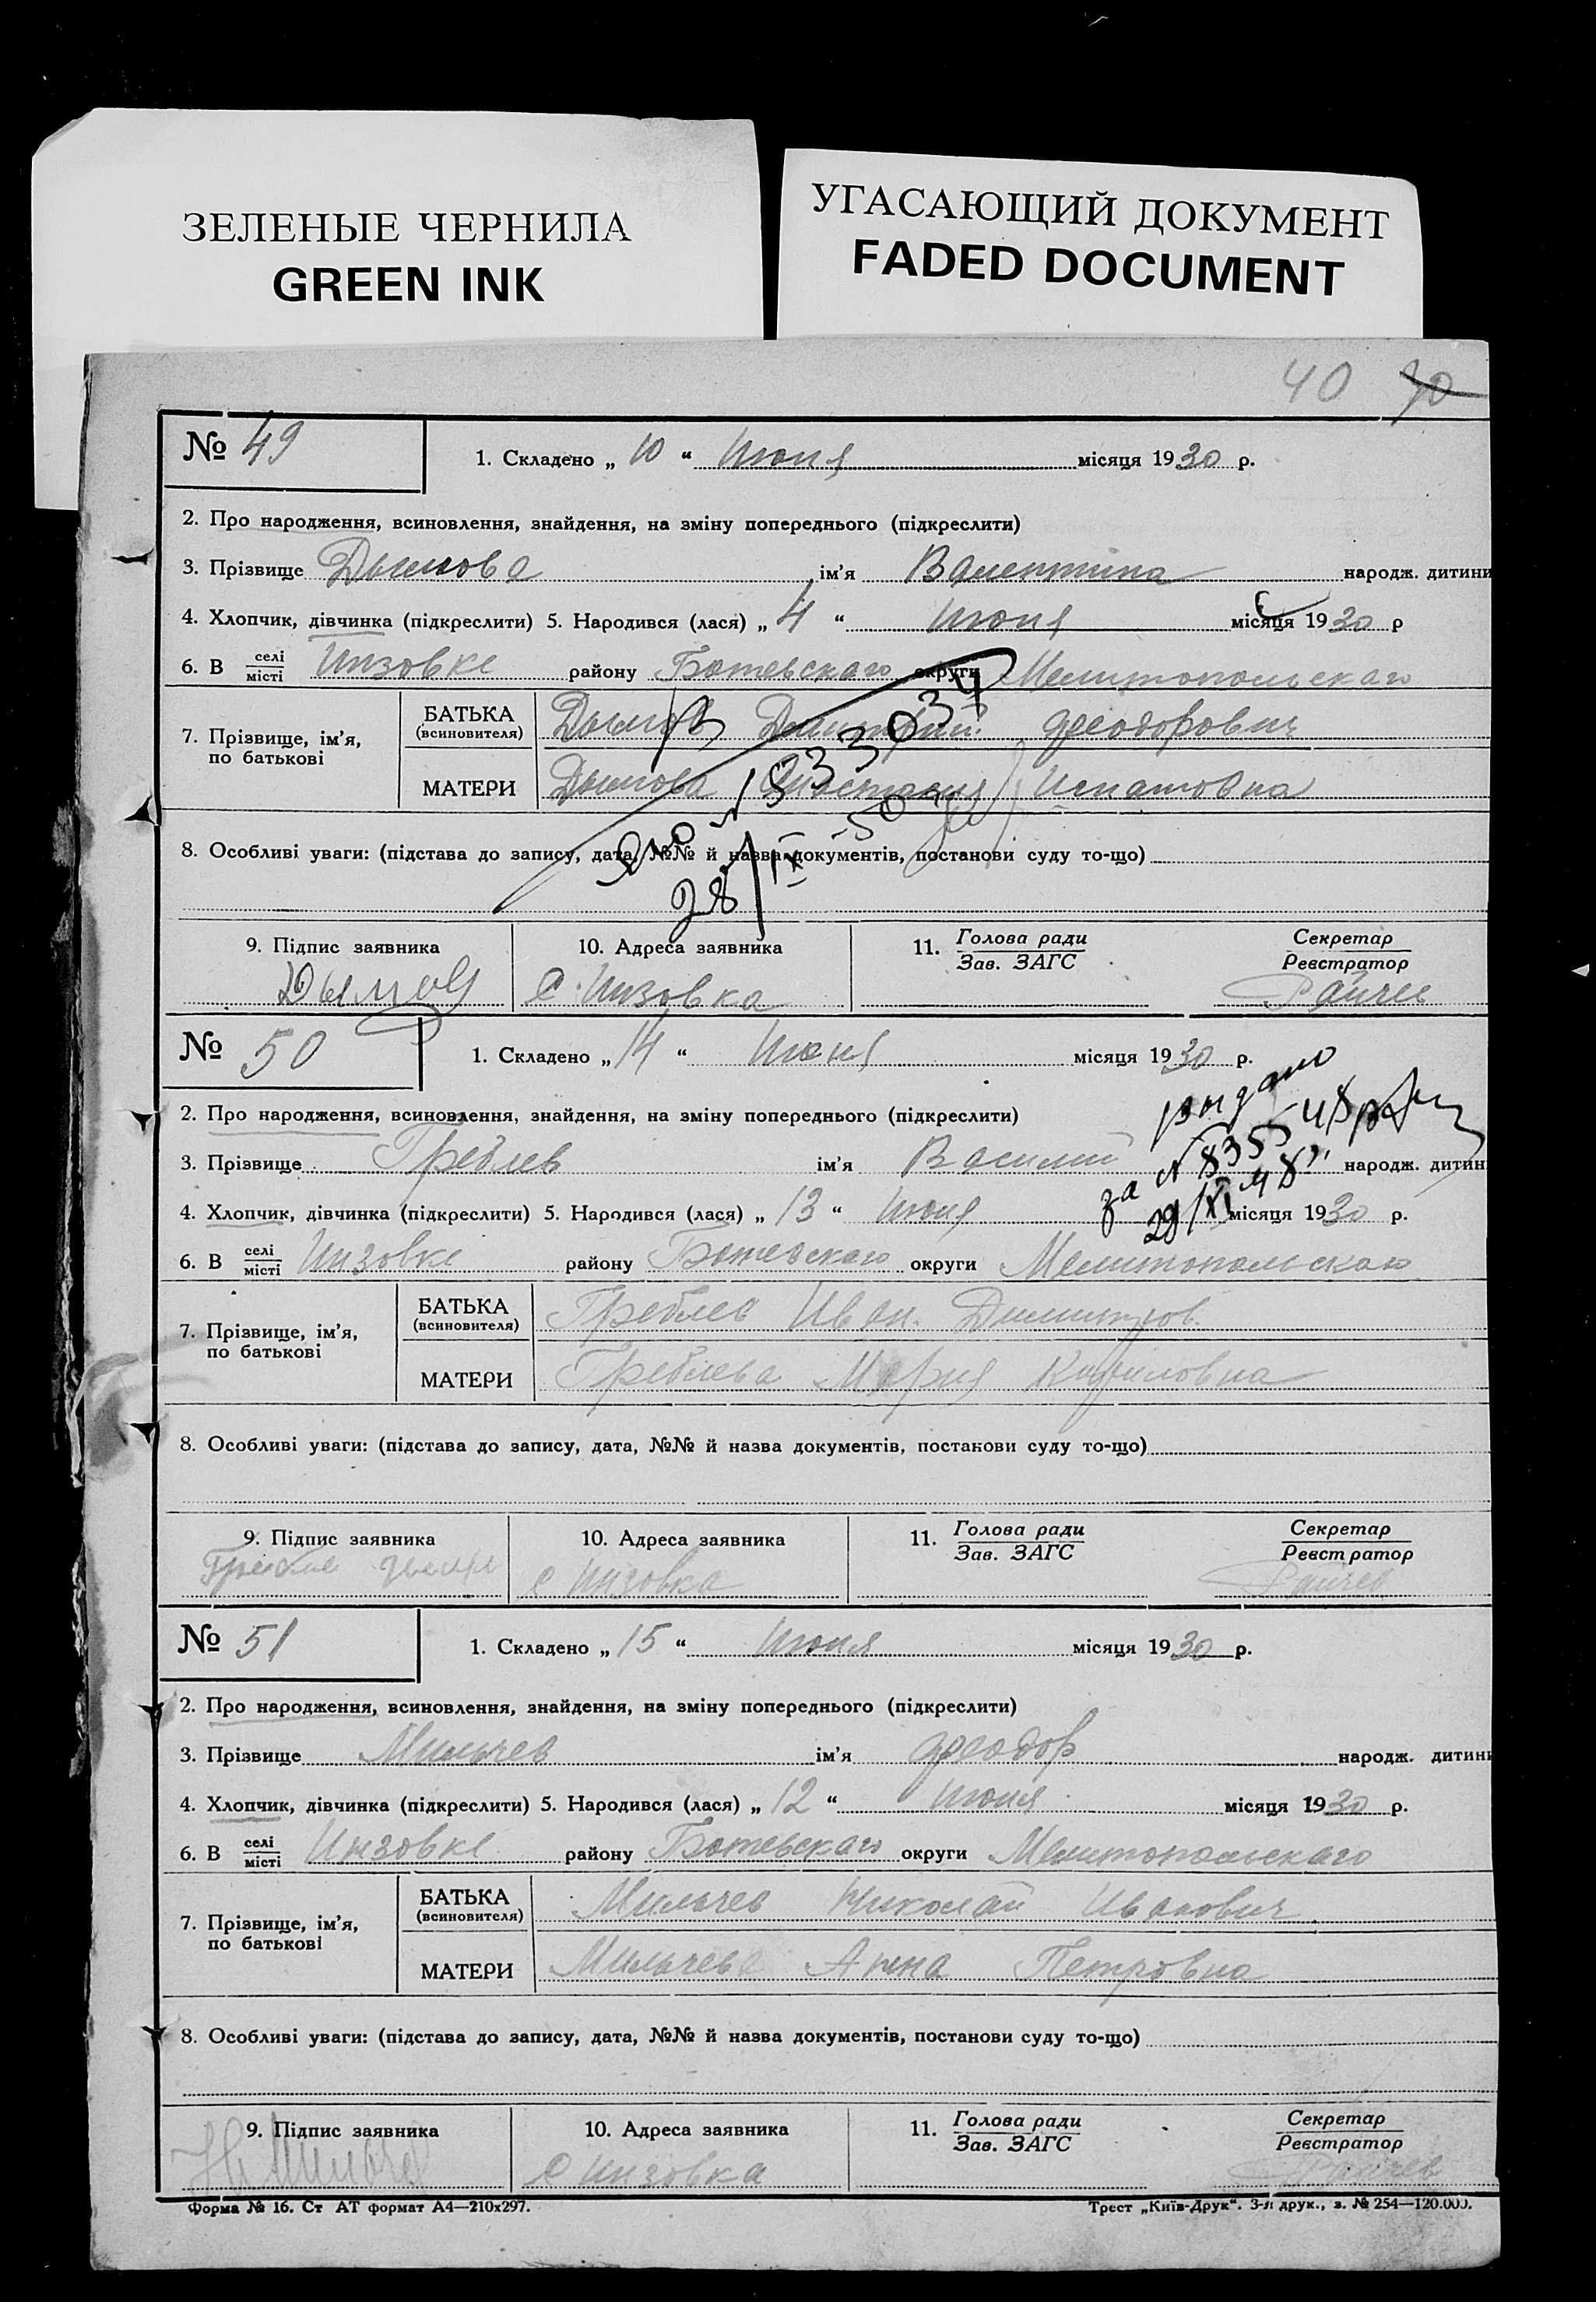 ЗЕЛЕНЫЕ ЧЕРНИЛА
GREEN INK
УГАСАЮЩИЙ ДОКУМЕНТ
FADED DOCUMENT
40 70
№ 49
1. Складено „ 10 “ Июня місяця 1930 р.
2. Про народження, всиновлення, знайдення, на зміну попереднього (підкреслити)
3. Прізвище Дымова ім’я Валентина народж. дитини
4. Хлопчик, дівчинка (підкреслити) 5. Народився (лася) „ 4 “ Июня місяця 1930 р
6. В селі/місті Инзовке району Ботевскаго округи Мелитопольскаго
7. Прізвище, ім’я, по батькові
БАТЬКА (всиновителя) Дымов Димитрий Феодорович
МАТЕРИ Дымова Анастасия Игнатовна
8. Особливі уваги: (підстава до запису, дата, №№ й назва документів, постанови суду то-що)
28/IX-50
9. Підпис заявника
Дымов
10. Адреса заявника
с. Инзовка
11. Голова ради
Зав. ЗАГС
Секретар
Реєстратор
Райчев
№ 50
1. Складено „ 14 “ Июня місяця 1930 р.
выдано
за № 8355
29/XI 48
2. Про народження, всиновлення, знайдення, на зміну попереднього (підкреслити)
3. Прізвище Греблев ім’я Василий народж. дитин
4. Хлопчик, дівчинка (підкреслити) 5. Народився (лася) „ 13 “ Июня місяця 1930 р.
6. В селі/місті Инзовке району Ботевскаго округи Мелитопольскаго
7. Прізвище, ім’я, по батькові
БАТЬКА (всиновителя) Греблев Иван Димитров.
МАТЕРИ Греблева Мария Кириловна
8. Особливі уваги: (підстава до запису, дата, №№ й назва документів, постанови суду то-що)
9. Підпис заявника
10. Адреса заявника
с Инзовка
11. Голова ради
Зав. ЗАГС
Секретар
Реєстратор
Райчев
№ 51
1. Складено „ 15 “ Июня місяця 1930 р.
2. Про народження, всиновлення, знайдення, на зміну попереднього (підкреслити)
3. Прізвище Мильчев ім’я Феодор народж. дитини
4. Хлопчик, дівчинка (підкреслити) 5. Народився (лася) „ 12 “ Июня місяця 1930 р.
6. В селі/місті Инзовке району Ботевскаго округи Мелитопольскаго
7. Прізвище, ім’я, по батькові
БАТЬКА (всиновителя) Мильчев Николай Иванович
МАТЕРИ Мильчева Анна Петровна
8. Особливі уваги: (підстава до запису, дата, №№ й назва документів, постанови суду то-що)
9. Підпис заявника
10. Адреса заявника
с Инзовка
11. Голова ради
Зав. ЗАГС
Секретар
Реєстратор
Райчев
Форма № 16. Ст АТ формат А4—210х297.
Трест „Київ-Друк“. 3-я друк., з. № 254—120.000.